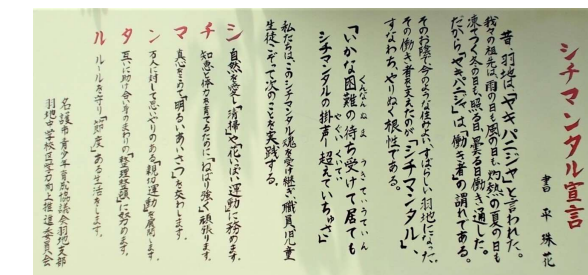 シチマンタル宣言
書 平 珠花
昔、羽地は、「ヤキバニジャ」と言われた。
我々の祖先は、雨の日も風の日も、灼熱の夏の日も
凍てつく冬の日も、照る日、曇る日働き通した。
だから「ヤキバニジ」は、働き者の謂れである。
そのお陰で今のような住みよい、すばらしい羽地になった。
その働き者を支えたのが「シチマンタル」、
すなわち、やりぬく根性である。
「いかな困難の待ち受けて居ても
シチマンタルの掛声り超えていちゅさ」
私たちは、このシチマンタル魂を受け継ぎ、職員、児童
生徒こぞって次のことを実践する。
シ 自然を愛し「清掃」や「花いっぱい運動」に務めます。
チ 知恵と体力を育てるために「ねばり強く」頑張ります。
マ 真心をこめて「明るいあいさつ」を交わします。
ン 万人に対して思いやりのある「親切運動」を展開します。
タ 互いに助け合い身のまわりの「整理整頓」に努めます。
ル ルールを守り「節度」ある生活をします。
名護市青少年育成協議会羽地支部
羽地中学校区学力向上推進委員会